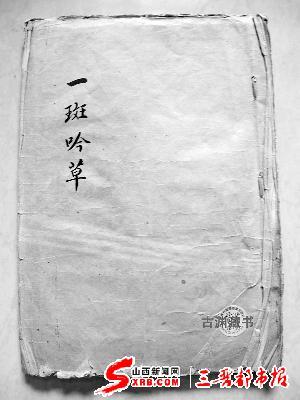 一斑吟草
古渊藏书
山西新闻网
SXRB.COM
三晋都市报